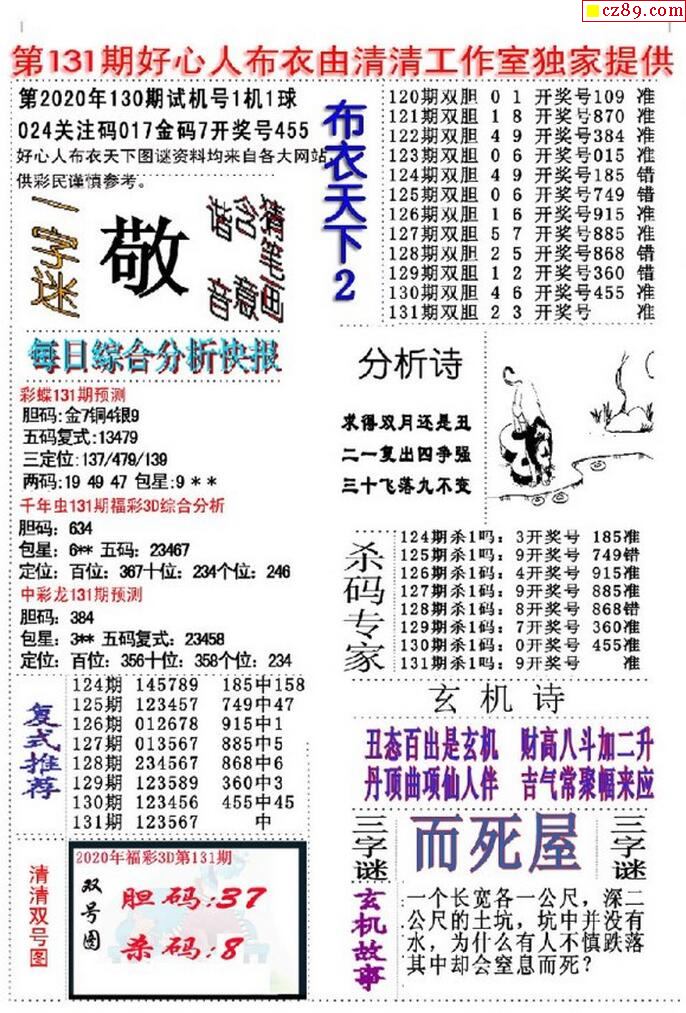 cz89.com
第131期好心人布衣由清清工作室独家提供
第2020年130期试机号1机1球
024关注码017金码7开奖号455
好心人布衣天下图谜资料均来自各大网站,
供彩民谨慎参考。
一字迷
敬
谐含猜
音意笔画
布衣天下2
120期双胆 0 1 开奖号109 准
121期双胆 1 8 开奖号870 准
122期双胆 4 9 开奖号384 准
123期双胆 0 6 开奖号015 准
124期双胆 4 9 开奖号185 错
125期双胆 0 6 开奖号749 错
126期双胆 1 6 开奖号915 准
127期双胆 5 7 开奖号885 准
128期双胆 2 5 开奖号868 错
129期双胆 1 2 开奖号360 错
130期双胆 4 6 开奖号455 准
131期双胆 2 3 开奖号 准
每日综合分析快报
彩蝶131期预测
胆码:金7铜4银9
五码复式:13479
三定位:137/479/139
两码:19 49 47 包星:9 * *
千年虫131期福彩3D综合分析
胆码: 634
包星: 6** 五码: 23467
定位: 百位: 367十位: 234个位: 246
中彩龙131期预测
胆码: 384
包星: 3** 五码复式: 23458
定位: 百位: 356十位: 358个位: 234
分析诗
求得双月还是丑
二一复出四争强
三十飞落九不变
杀码专家
124期杀1吗: 3开奖号 185准
125期杀1吗: 9开奖号 749错
126期杀1码: 4开奖号 915准
127期杀1码: 9开奖号 885准
128期杀1码: 8开奖号 868错
129期杀1码: 7开奖号 360准
130期杀1码: 0开奖号 455准
131期杀1码: 9开奖号 准
复式推荐
124期 145789 185中158
125期 123457 749中47
126期 012678 915中1
127期 013567 885中5
128期 234567 868中6
129期 123589 360中3
130期 123456 455中45
131期 123567 中
玄机诗
丑态百出是玄机 财高八斗加二升
丹顶曲项仙人伴 吉气常聚幅来应
三字谜
而死屋
三字谜
清清双号图
2020年福彩3D第131期
双号图
胆码:37
杀码:8
玄机故事
一个长宽各一公尺，深二
公尺的土坑，坑中并没有
水，为什么有人不慎跌落
其中却会窒息而死？